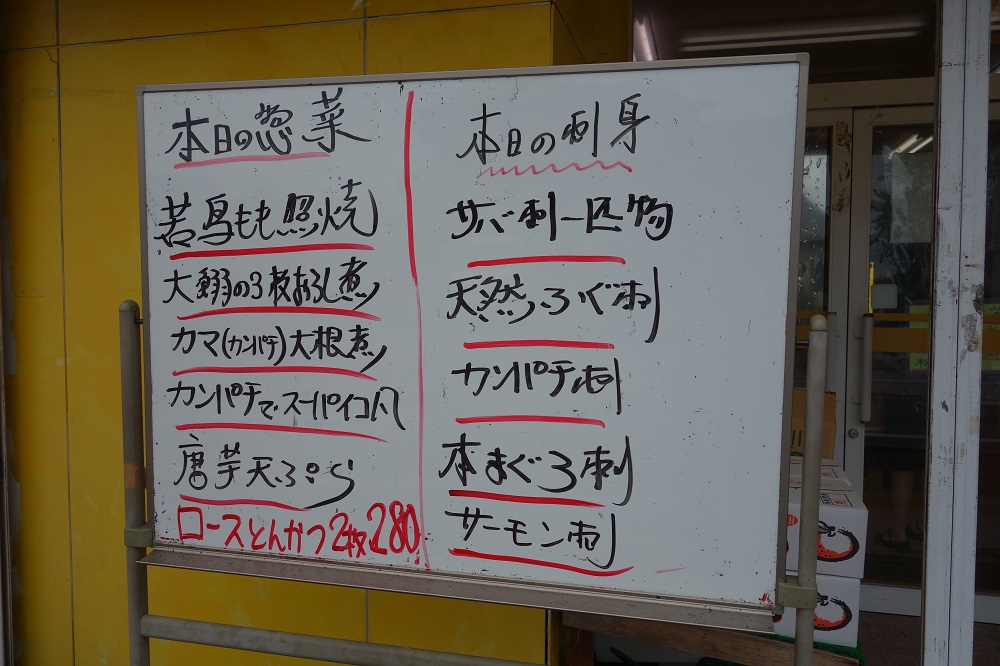 本日の惣菜
若鳥もも照焼
大鰯の3枚おろし煮
カマ(カンパチ)大根煮
カンパチでスーパイコ風
唐芋天ぷら
ロースとんかつ2枚280
本日の刺身
サバ刺一匹物
天然ふぐ刺
カンパチ刺
本まぐろ刺
サーモン刺